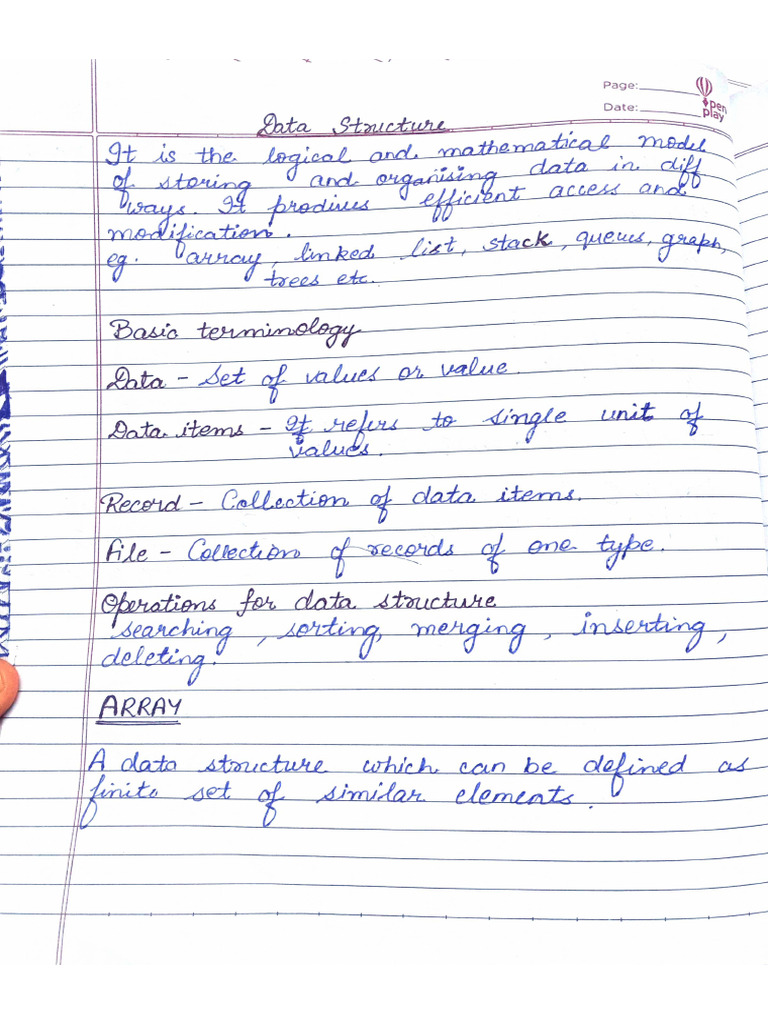 Page:
Date:
pen
play
Data Structure
It is the logical and mathematical model
of storing and organising data in diff
ways. It prodives efficient access and
modification.
eg. array, linked list, stack, queues, graph,
trees etc.
Basic terminology
Data - Set of values or value.
Data items - It refers to single unit of
values.
Record - Collection of data items.
File - Collection of records of one type.
Operations for data structure
searching, sorting, merging, inserting,
deleting.
ARRAY
A data structure which can be defined as
finite set of similar elements.